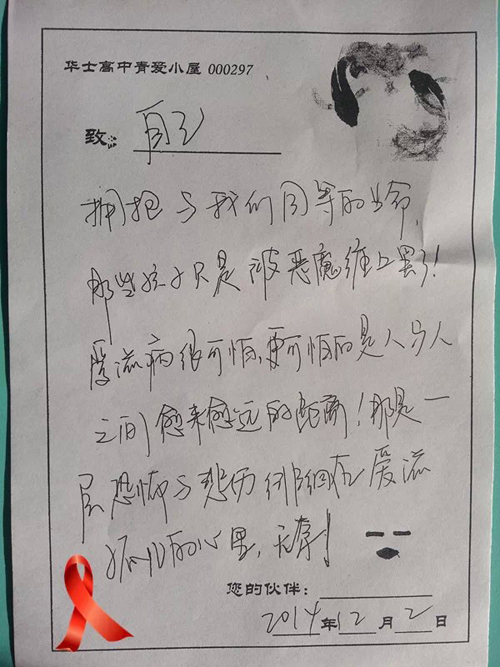 华士高中青爱小屋 000297
致： 自己
拥抱与我们同等的生命，
那些孩子只是被恶魔缠上罢了！
爱滋病很可怕，更可怕的是人与人
之间愈来愈远的距离！那是一
层恐怖与悲伤 在爱滋
孤儿的心里，无
您的伙伴：
2014年12月2日